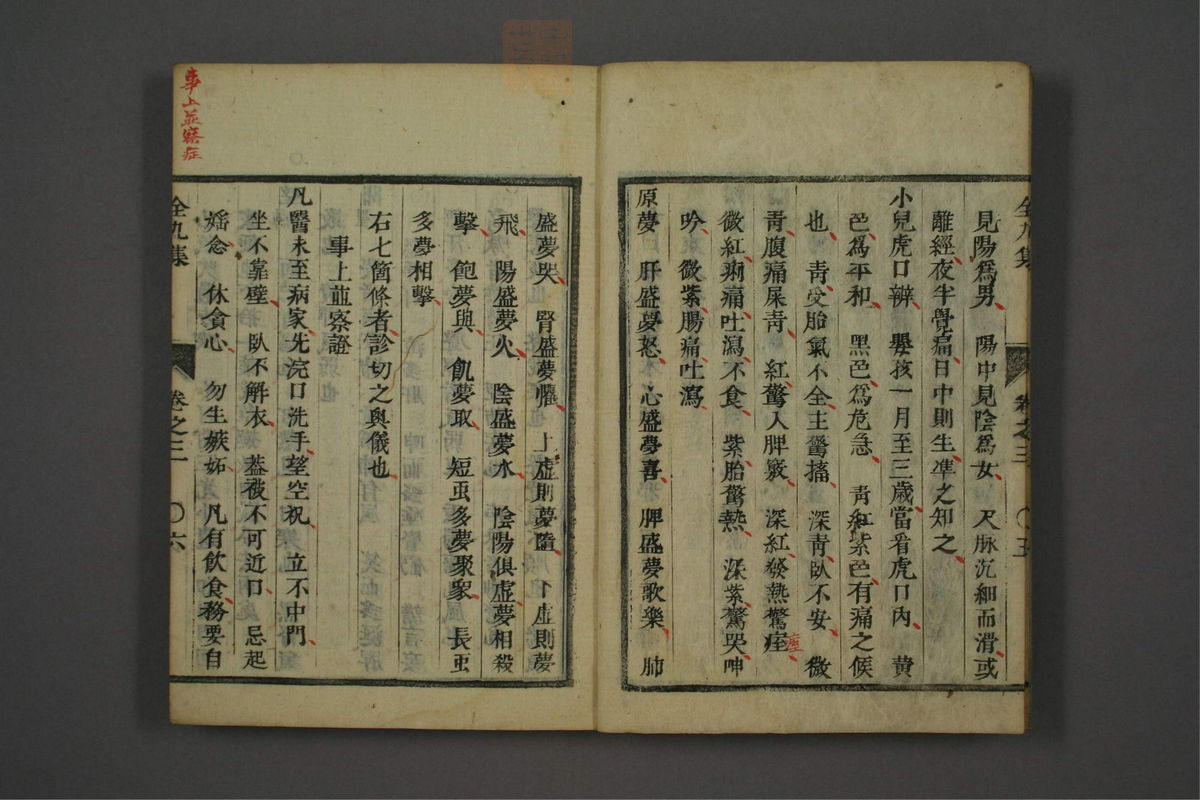 全九集 卷之三 〇五
見陽爲男 陽中見陰爲女 尺脉沉細而滑或
離經夜半覺痛日中則生準之知之
小兒虎口辨 嬰孩一月至三歲當看虎口內 黄
色爲平和 黑色爲危急 青紅紫色有痛之候
也 青受胎氣不全主驚搐 深青臥不安 微
青腹痛屎青 紅驚人脾竅 深紅發熱驚痓
痙
微紅痢痛吐瀉不食 紫胎驚熱 深紫驚哭呻
吟 微紫腸痛吐瀉
原夢 肝盛夢怒 心盛夢喜 脾盛夢歌樂 肺
盛夢哭 腎盛夢懼 上虛則夢墮 下虛則夢
飛 陽盛夢火 陰盛夢水 陰陽俱虛夢相殺
擊 飽夢與 飢夢取 短虫多夢聚衆 長虫
多夢相擊
右七箇條者診切之奧儀也
事上並察證
凡醫未至病家先浣口洗手望空祝 立不中門
坐不靠壁 臥不解衣 蓋被不可近口 忌起
婬念 休貪心 勿生嫉妬 凡有飲食務要自
全九集 卷之三 〇六
事上並察症